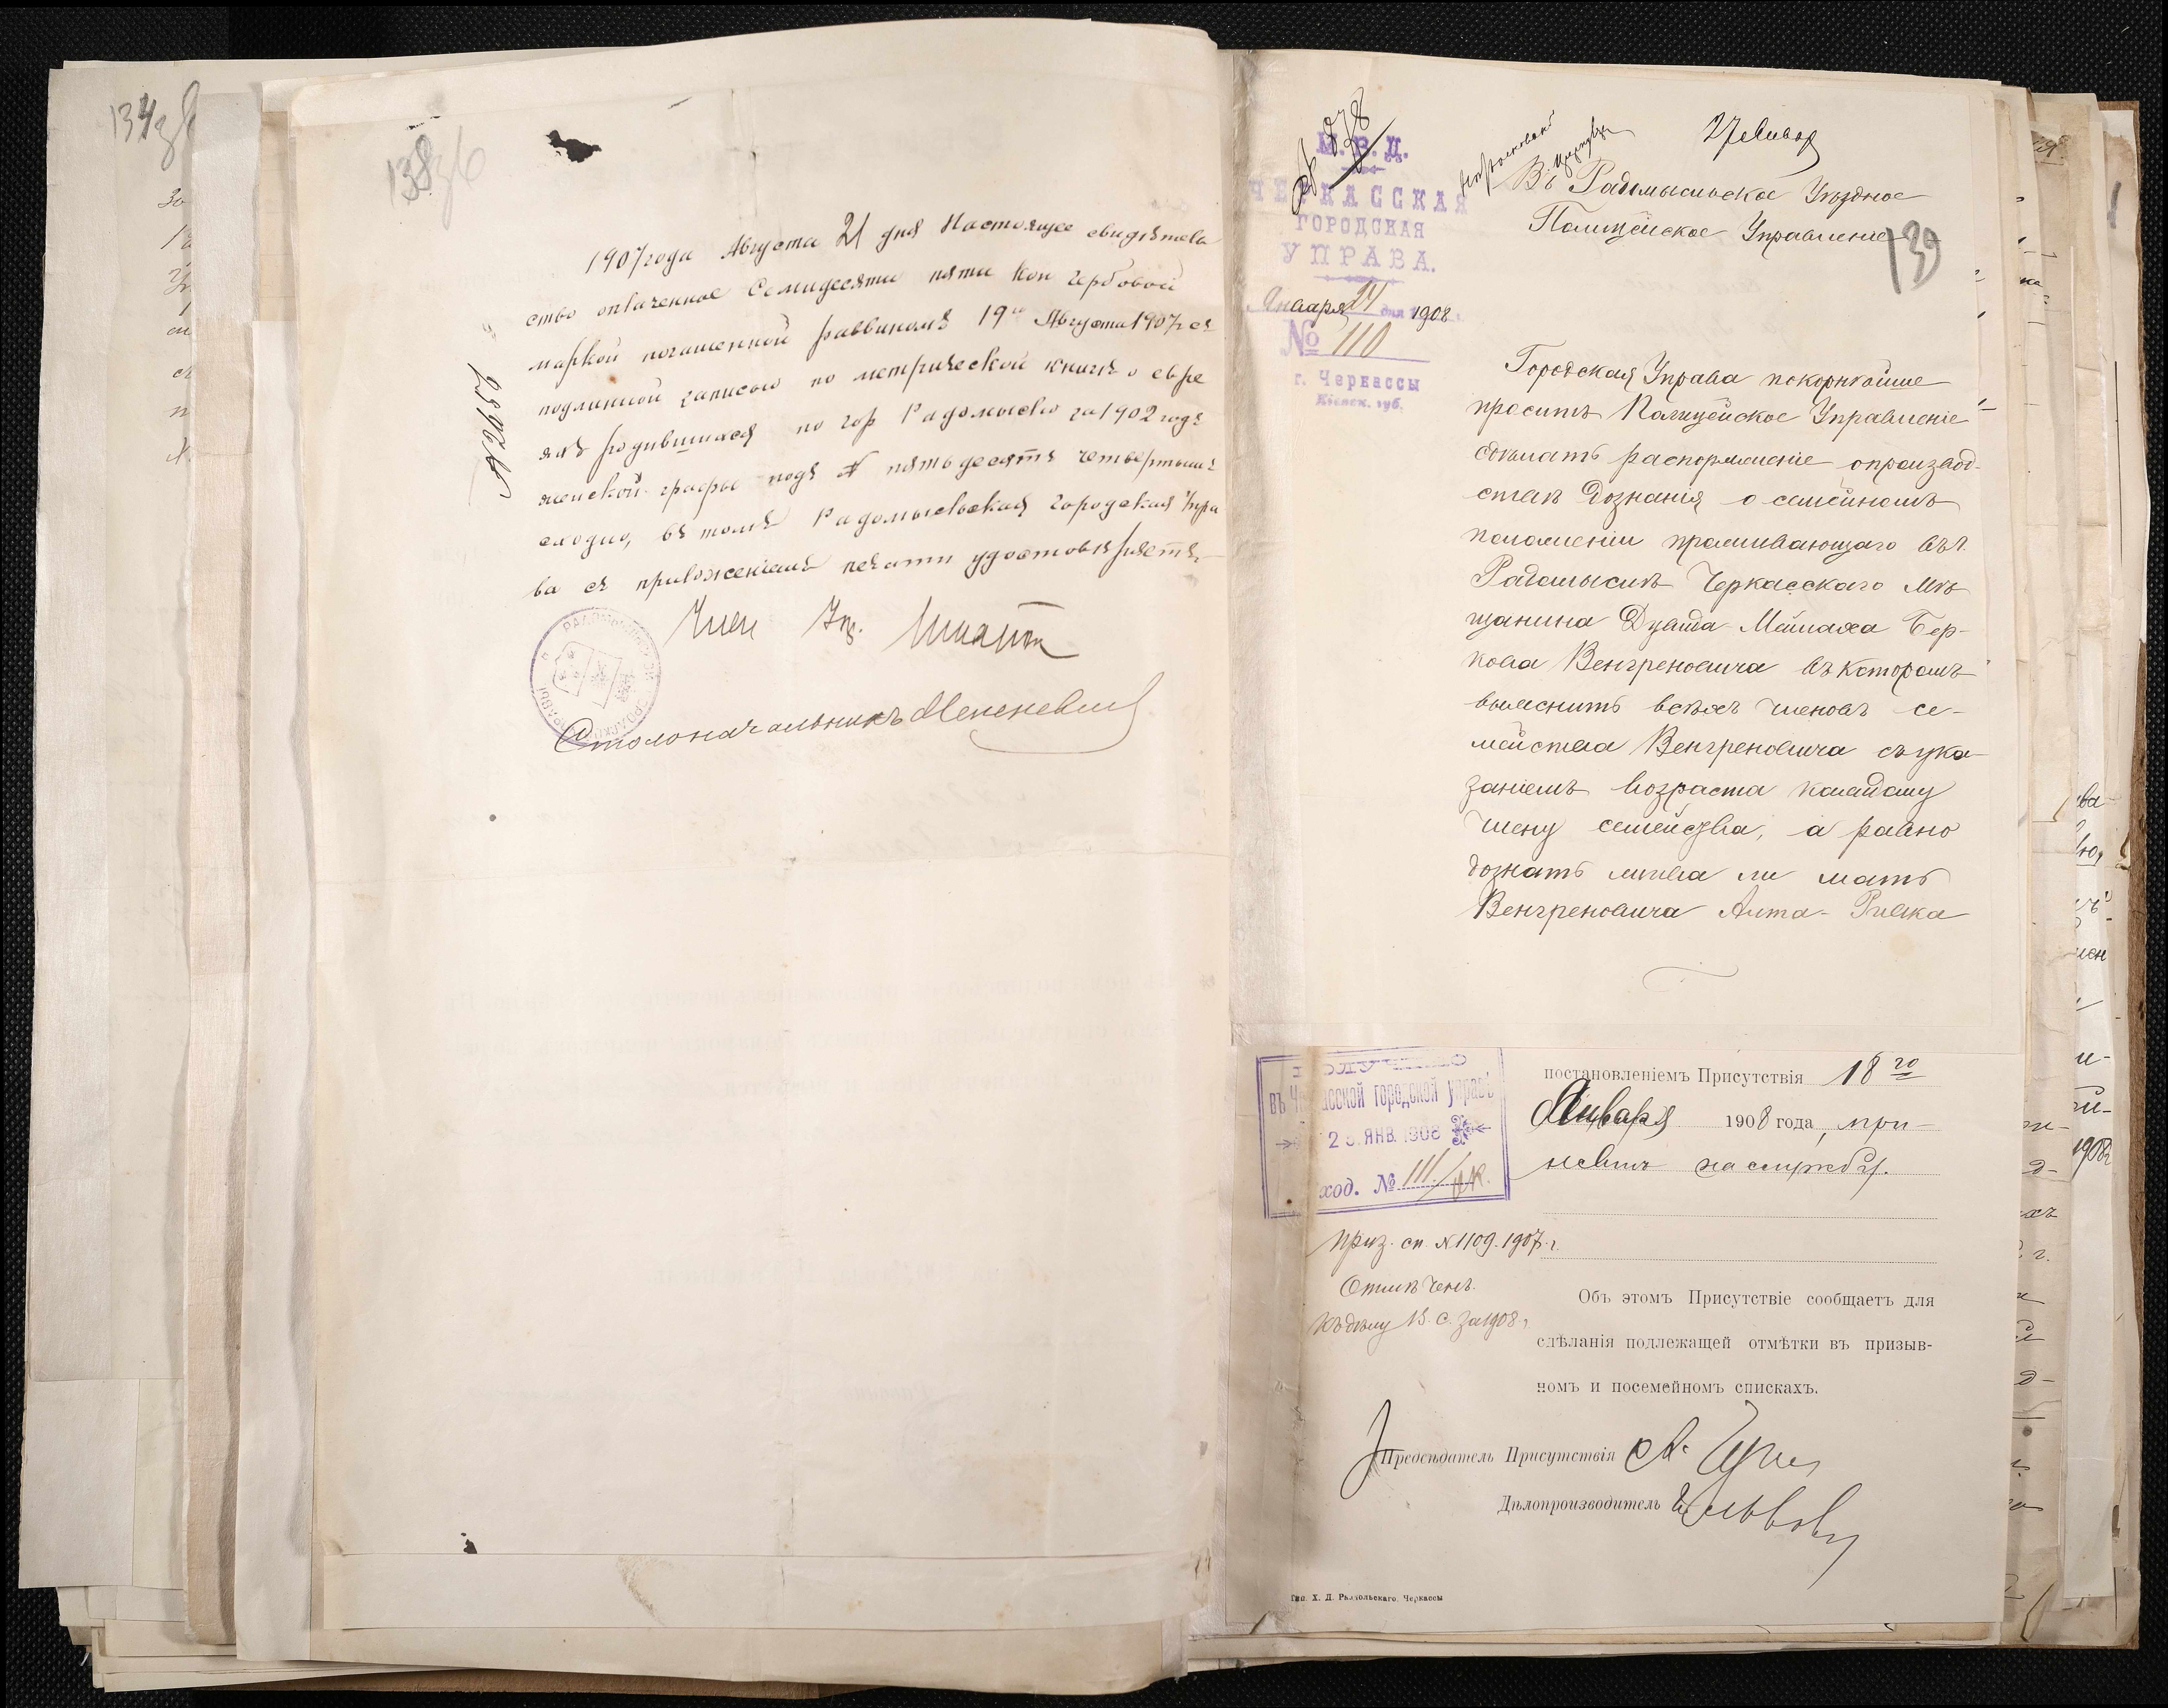 138
1907 года Августа 21 дня Настоящее свидѣтель
ство оплаченное Семидесяти пяти коп гербовой
маркой погашенной раввиномъ 19го Августа 1907 г съ
подлинной записью по метрической книгѣ о евре
яхъ родившихся по гор Радомыслю за 1902 годъ
женской графы подъ № пятьдесятъ четвертымъ
сходно, въ томъ Радомысльская Городская Упра
ва съ приложеніемъ печати удостовѣряетъ.
Член Упр.
Столоначальникъ
М. В. Д.
ЧЕРКАССКАЯ
ГОРОДСКАЯ
УПРАВА.
Января 24 дня 1908 г.
№ 110
г. Черкассы
Кіевск. губ.
139
Въ Радомысльское Уѣздное
Полицейское Управленіе
Городская Управа покорнѣйше
проситъ Полицейское Управленіе
сдѣлать распоряженіе о производ-
ствѣ дознанія о семейномъ
положеніи проживающаго въ г.
Радомыслѣ Черкасскаго мѣ
щанина Дувида-Мейлаха Бер-
кова Венгреновича въ которомъ
выяснить всѣхъ членовъ се-
мейства Венгреновича съ ука-
заніемъ возраста каждому
члену семейства, а равно
дознать жива ли мать
Венгреновича Алта-Ривка
ПОЛУЧЕНО
въ Черкасской городской управѣ
25 ЯНВ. 1908
Вход. № 111
постановленіемъ Присутствія 18го
Января 1908 года, при-
нятъ на службу.
Приз. сп. № 1109. 1907 г.
Отмѣченъ.
Къ дѣлу В. С. за 1908 г.
Объ этомъ Присутствіе сообщаетъ для
сдѣланія подлежащей отмѣтки въ призыв-
номъ и посемейномъ спискахъ.
Предсѣдатель Присутствія
Дѣлопроизводитель
Тип. Х. Д. Рассольскаго, Черкассы